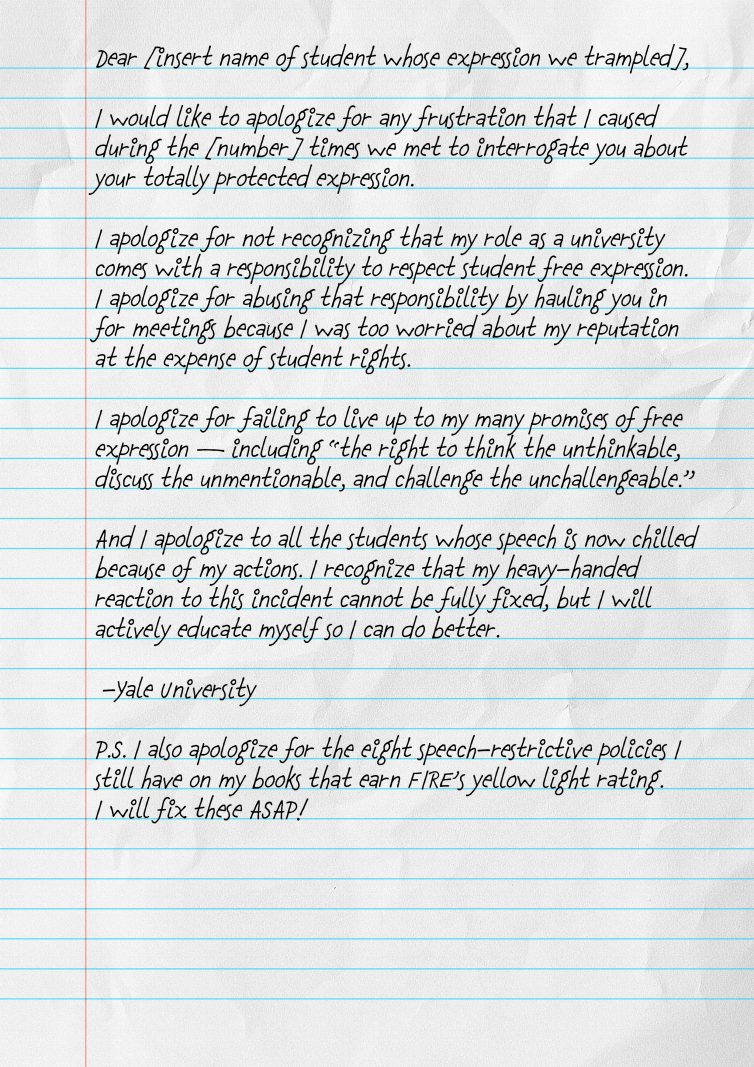 Dear [insert name of student whose expression we trampled],
I would like to apologize for any frustration that I caused
during the [number] times we met to interrogate you about
your totally protected expression.
I apologize for not recognizing that my role as a university
comes with a responsibility to respect student free expression.
I apologize for abusing that responsibility by hauling you in
for meetings because I was too worried about my reputation
at the expense of student rights.
I apologize for failing to live up to my many promises of free
expression — including “the right to think the unthinkable,
discuss the unmentionable, and challenge the unchallengeable.”
And I apologize to all the students whose speech is now chilled
because of my actions. I recognize that my heavy-handed
reaction to this incident cannot be fully fixed, but I will
actively educate myself so I can do better.
-Yale University
P.S. I also apologize for the eight speech-restrictive policies I
still have on my books that earn FIRE’s yellow light rating.
I will fix these ASAP!